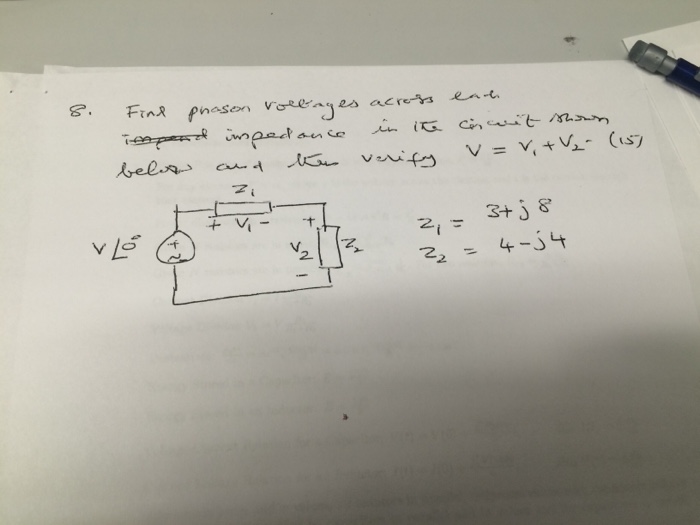 8. Find phasor voltages across each
impedance in the circuit shown
below and then verify V = V₁ + V₂. (15)
Z₁
+ V₁ -
V∠0°
+
~
+
V₂
-
Z₂
Z₁ = 3+j8
Z₂ = 4-j4